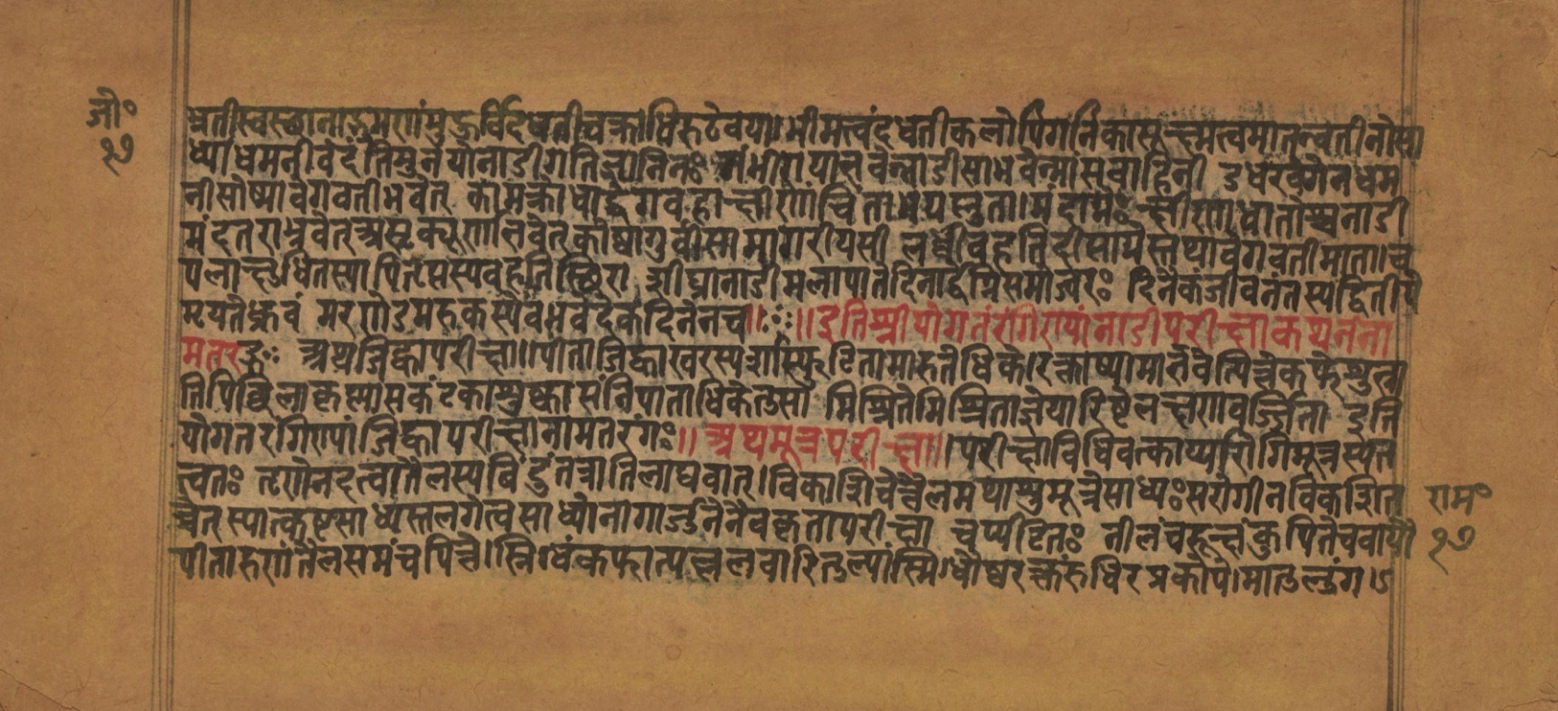 जो॰
१७
ध्रतीस्वस्छानाङ्गमणंमुङ्गर्विदधतीचक्राधिरुठेवया। भीमत्वंदधतीकलोपिगतिकासूक्ष्मत्वमातन्वतीनोसा
ध्याधमनीवदंतिमुनयोनाडीगतिज्ञानिनः गंभीरायाभवेन्नाडीसाभवेन्मासवाहिनी ज्वरवेगेनधम
नीसोष्णावेगवतीभवेत् कामक्रोधाद्वेगवहाक्षीणाचिंताभयप्लुता। मंदाग्नेः क्षीणधातोश्चनाडी
मंदतराभवेत्असृक्पूर्णाभवेत्कोष्णागुर्वीसामागरीयसी लघ्वीवहतिदीप्ताग्नेस्तथावेगवतीमाता। च
पलाक्षुधितस्यापितृप्तस्यवहतिस्छिरा शीघ्रानाडीमलोपातेदिनार्द्धेग्निसमोज्वरः दिनैकंजीवनंतस्यद्वितीये
म्रयतेध्रुवं मरणेडमरुकस्येवभवेदेकदिनेनच॥ः॥इतिश्रीयोगतरंगिण्यांनाडीपरीक्षाकथनंना
मतरङ्गः अथजिह्वापरीक्षा॥पीताजिह्वाखरस्पर्शास्फुटितामारुतेधिके। रक्ताष्यामाभवेत्पित्तेकफेशुभ्रा
तिपिछिलाकृष्णासकंटकाशुष्कासंनिपाताधिकेतुसा मिश्रितेमिश्रिताज्ञेयारिष्टलक्षणवर्ज्जिता इति
योगतरंगिण्यांजिह्वापरीक्षानामतरंगः॥ अथमूत्रपरीक्षा॥।परीक्षाविधिवत्कार्य्यारोगिमूत्रस्यत
त्वतः तृणेनदत्वातैलस्यबिंदुंतत्रातिलाघवात्। विकाशिचेत्तैलमथाशुमूत्रेसाध्यःसरोगीनविकाशित
चेत् स्यात्कष्टसाध्यस्तलगेत्वसाध्योनागार्ज्जुनेनैवकृतापरीक्षा चुप्पीटितः नीलंचरूक्षंकुपितेचवायौ
पीतारुणंतैलसमंचपित्ते। स्निग्धंकफात्पल्वलवारितुल्यंस्निग्धोष्णरक्तंरुधिरप्रकोपे। मातुलुंग ऽ
राम॰
१७